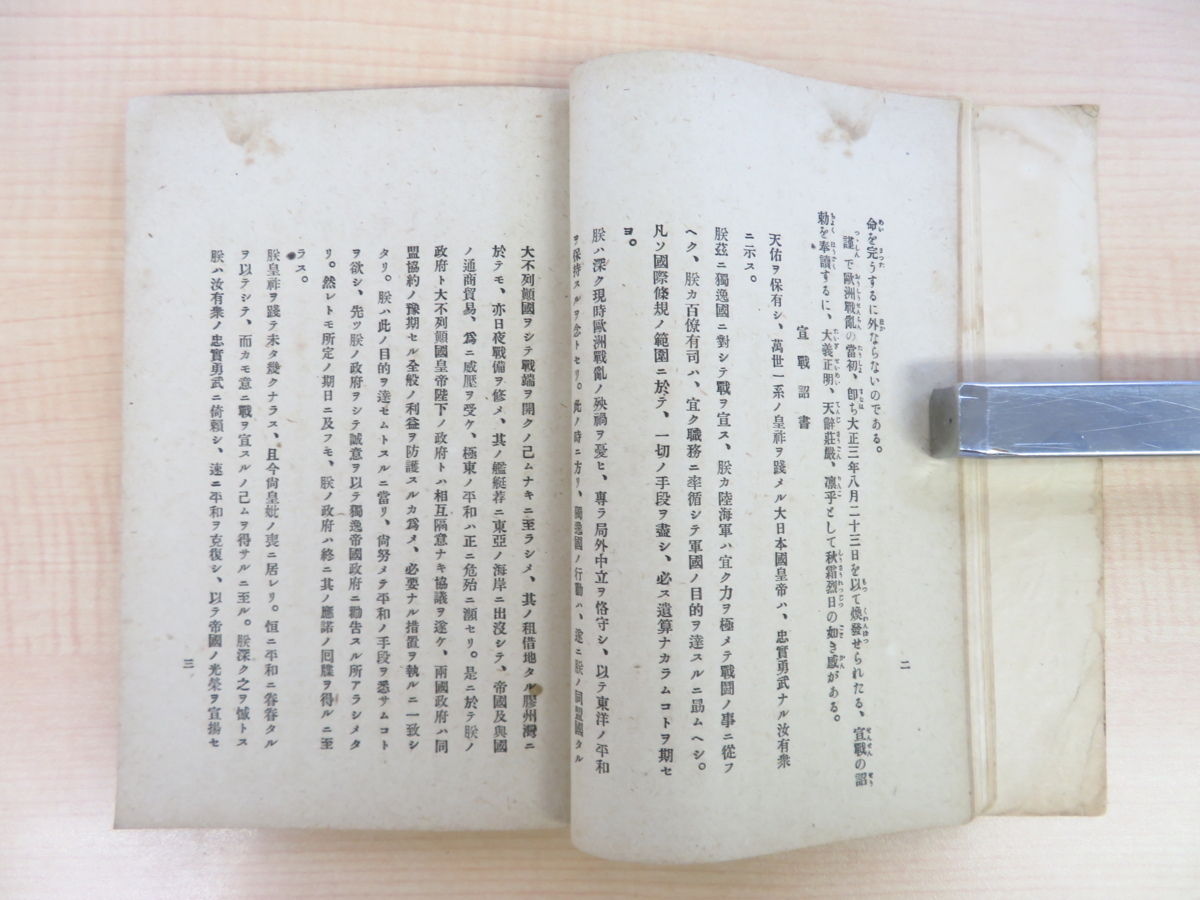 命を完うするに外ならないのである。
謹で歐洲戰亂の當初、卽ち大正三年八月二十三日を以て煥發せられたる、宣戰の詔
勅を奉讀するに、大義正明、天辭莊嚴、凛乎として秋霜烈日の如き感がある。
宣戰詔書
天佑ヲ保有シ、萬世一系ノ皇祚ヲ踐メル大日本國皇帝ハ、忠實勇武ナル汝有衆
ニ示ス。
朕玆ニ獨逸國ニ對シテ戰ヲ宣ス、朕カ陸海軍ハ宜ク力ヲ極メテ戰鬪ノ事ニ從フ
ヘク、朕カ百僚有司ハ、宜ク職務ニ率循シテ軍國ノ目的ヲ達スルニ勗ムヘシ。
凡ソ國際條規ノ範圍ニ於テ、一切ノ手段ヲ盡シ、必ス遺算ナカラムコトヲ期セ
ヨ。
朕ハ深ク現時歐洲戰亂ノ殃禍ヲ憂ヒ、專ラ局外中立ヲ恪守シ、以テ東洋ノ平和
ヲ保持スルヲ念トセリ。此ノ時ニ方リ、獨逸國ノ行動ハ、遂ニ朕ノ同盟國タル
二
大不列顚國ヲシテ戰端ヲ開クノ已ムナキニ至ラシメ、其ノ租借地タル膠州灣ニ
於テモ、亦日夜戰備ヲ修メ、其ノ艦艇荐ニ東亞ノ海岸ニ出沒シテ、帝國及與國
ノ通商貿易、爲ニ威壓ヲ受ケ、極東ノ平和ハ正ニ危殆ニ瀕セリ。是ニ於テ朕ノ
政府ト大不列顚國皇帝陛下ノ政府トハ相互隔意ナキ協議ヲ遂ケ、兩國政府ハ同
盟協約ノ豫期セル全般ノ利益ヲ防護スルカ爲メ、必要ナル措置ヲ執ルニ一致シ
タリ。朕ハ此ノ目的ヲ達セムトスルニ當リ、尙努メテ平和ノ手段ヲ悉サムコト
ヲ欲シ、先ツ朕ノ政府ヲシテ誠意ヲ以テ獨逸帝國政府ニ勸告スル所アラシメタ
リ。然レトモ所定ノ期日ニ及フモ、朕ノ政府ハ終ニ其ノ應諾ノ囘牒ヲ得ルニ至
ラス。
朕皇祚ヲ踐テ未タ幾クナラス、且今尙皇妣ノ喪ニ居レリ。恒ニ平和ニ眷眷タル
ヲ以テシテ、而カモ竟ニ戰ヲ宣スルノ已ムヲ得サルニ至ル。朕深ク之ヲ憾トス
朕ハ汝有衆ノ忠實勇武ニ倚賴シ、速ニ平和ヲ克復シ、以テ帝國ノ光榮ヲ宣揚セ
三